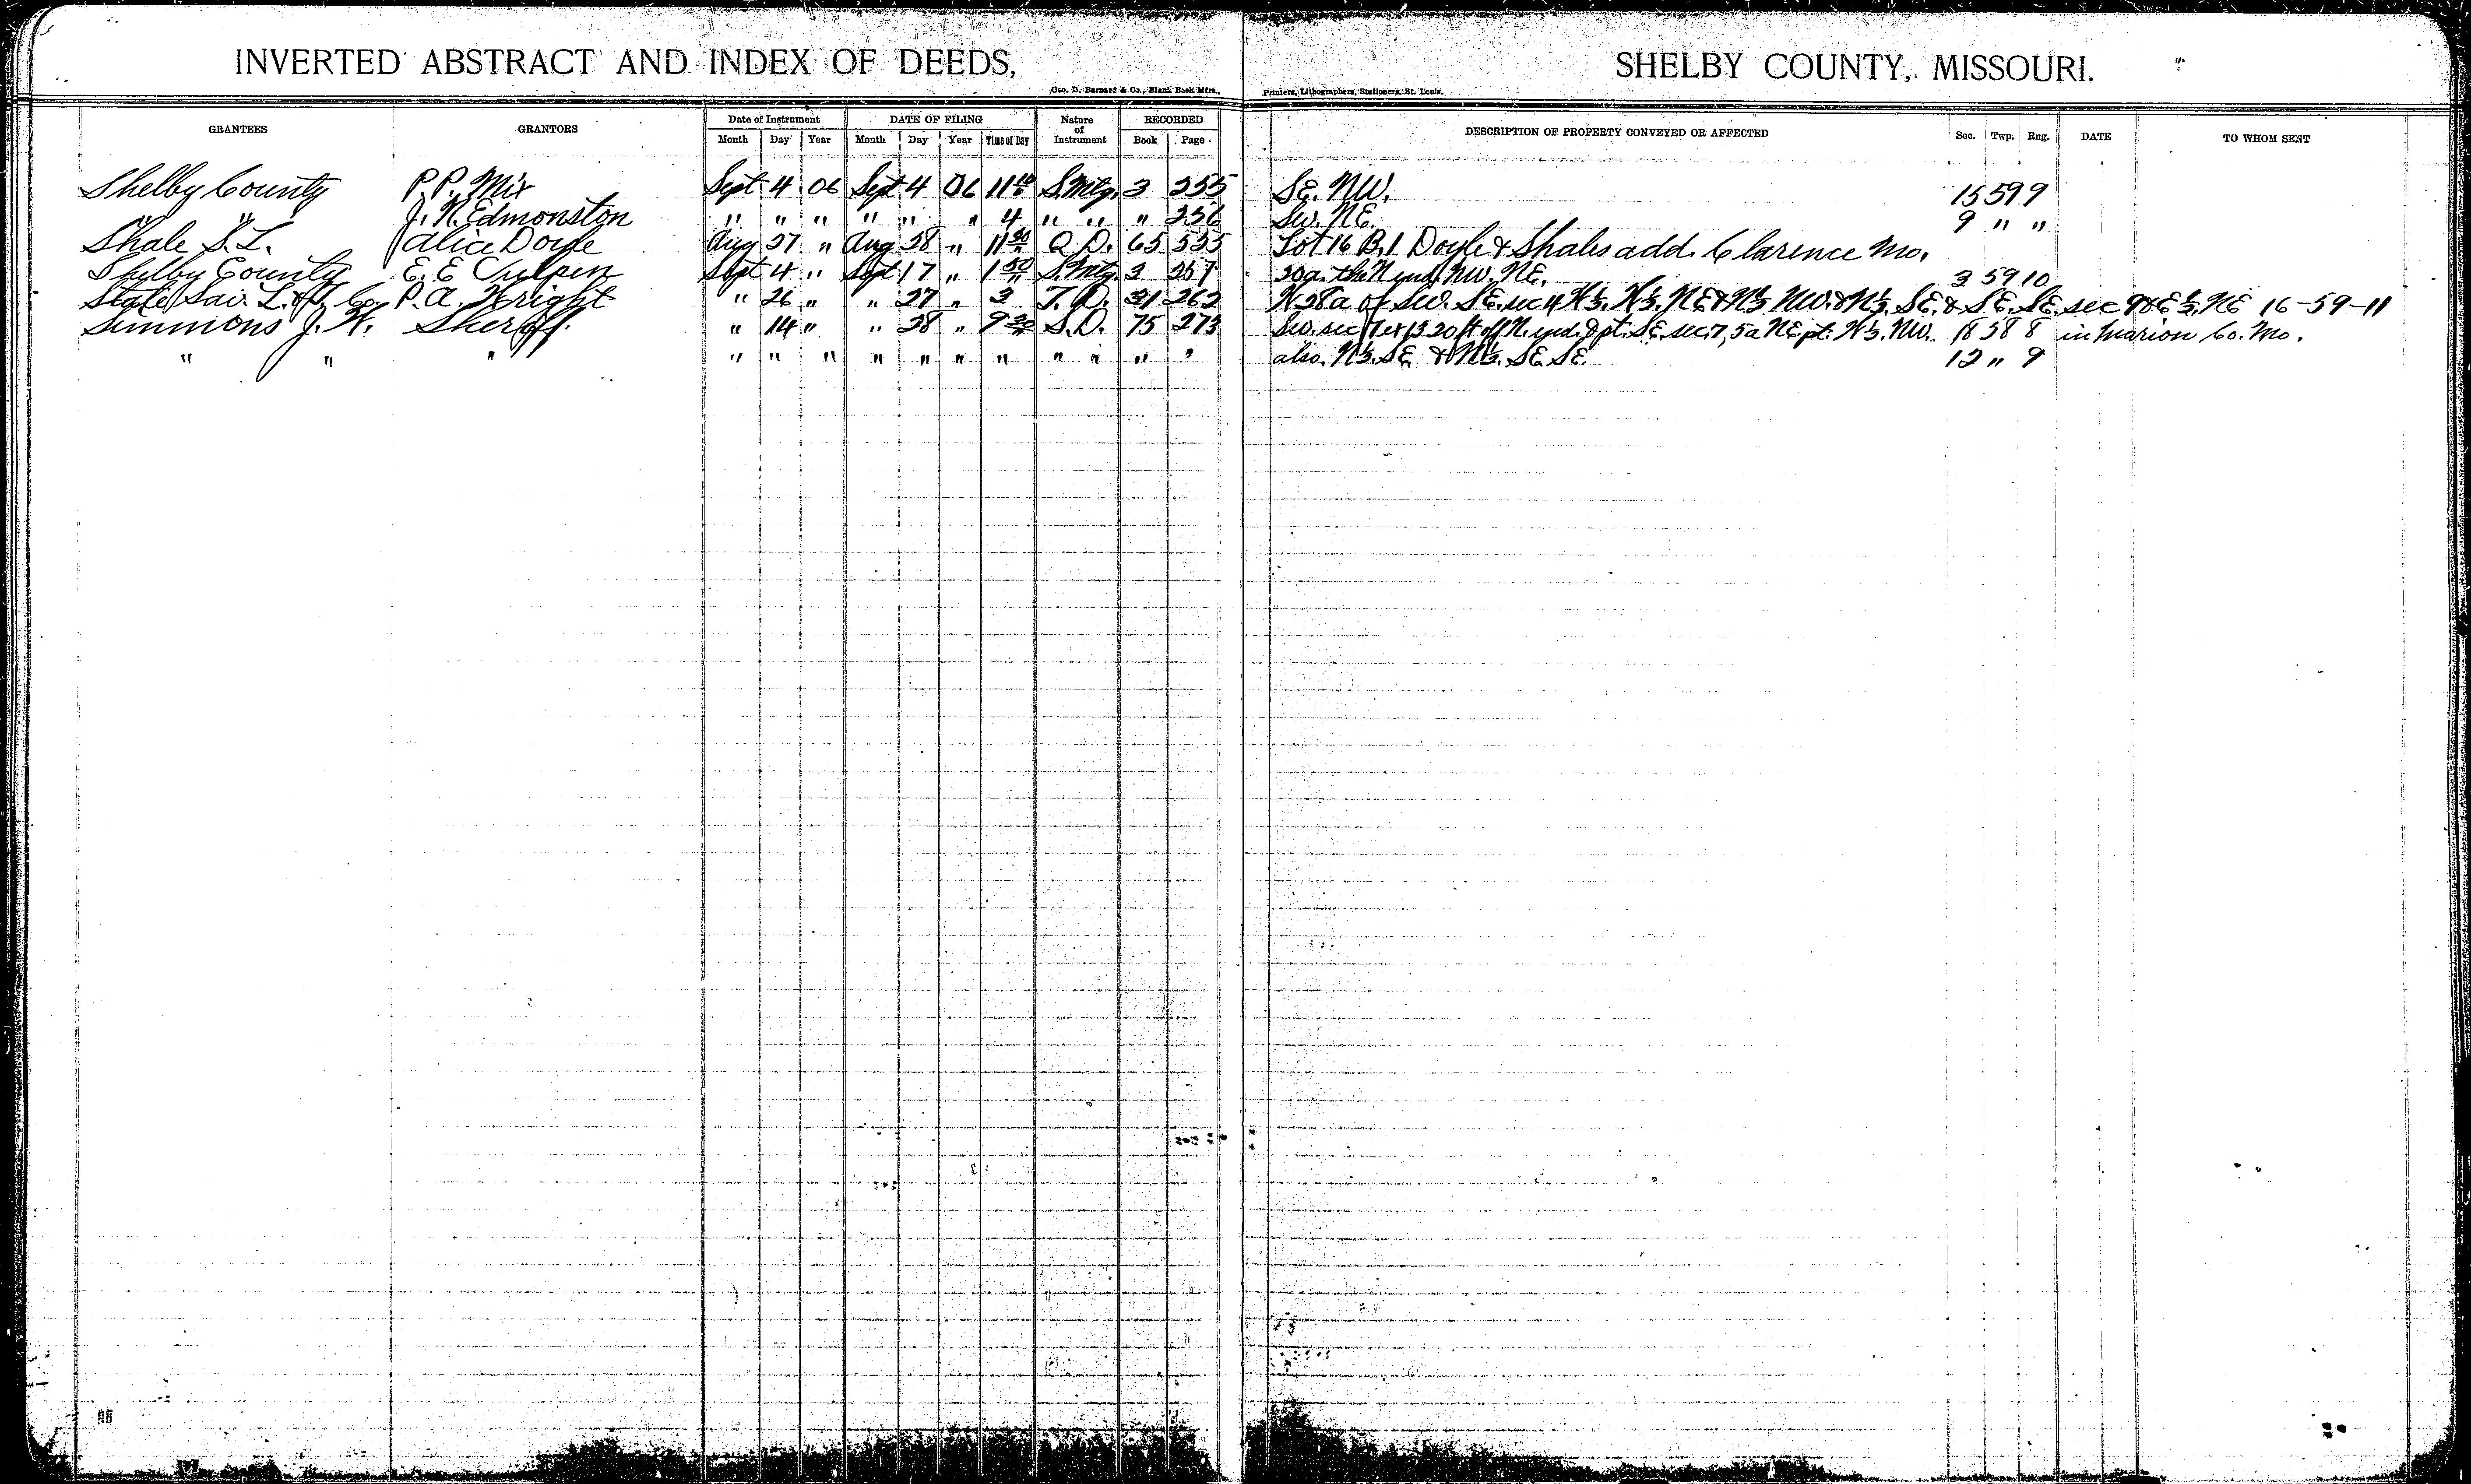 INVERTED ABSTRACT AND INDEX OF DEEDS, SHELBY COUNTY, MISSOURI.
Geo. D. Barnard & Co., Blank Book Mfrs., Printers, Lithographers, Stationers, St. Louis.
GRANTEES GRANTORS Date of Instrument DATE OF FILING Nature of Instrument RECORDED DESCRIPTION OF PROPERTY CONVEYED OR AFFECTED Sec. Twp. Rng. DATE TO WHOM SENT
Month Day Year Month Day Year Time of Day Book Page
Shelby County P.P. Mix Sept 4 06 Sept 4 06 11 S. Mtg. 3 255 SE. NW. 15 59 9
" " J. N. Edmonston " " " " " " 4 " " " 256 Sw. NE. 9 " "
Shale S. L. Alice Doyle Aug 27 " Aug 28 " 11 Q. D. 65 535 Lot 16 B. 1 Doyle & Shales add. Clarence Mo.
Shelby County E. E. Sept 4 " Sept 17 " 1 50 S. Mtg. 3 257 20a. the N end NW. NE. 3 59 10
State Sav. L. & T. Co. P. A. Wright " 26 " " 27 " 3 T. D. 31 262 W 28a of Sw. SE. sec 4 W ½. W ½. NE & N ½ NW. & N ½. SE. & SE. SE. sec 9 & E ½. NE 16-59-11
Simmons J. H. Sheriff. " 14 " " 28 " 9 S. D. 75 273 Sw. sec 7 ex 13.20 ft off N. end. & pt. SE. sec. 7, 5a NE. pt. W ½. NW. 18 58 8 in Marion Co. Mo.
" " " " " " " " " " " " " " also. N ½. SE & N ½. SE SE. 12 " 9